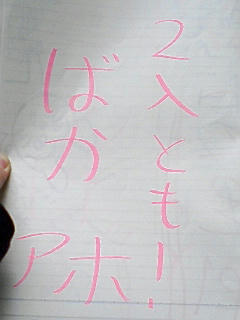 2人とも!
ばか
アホ